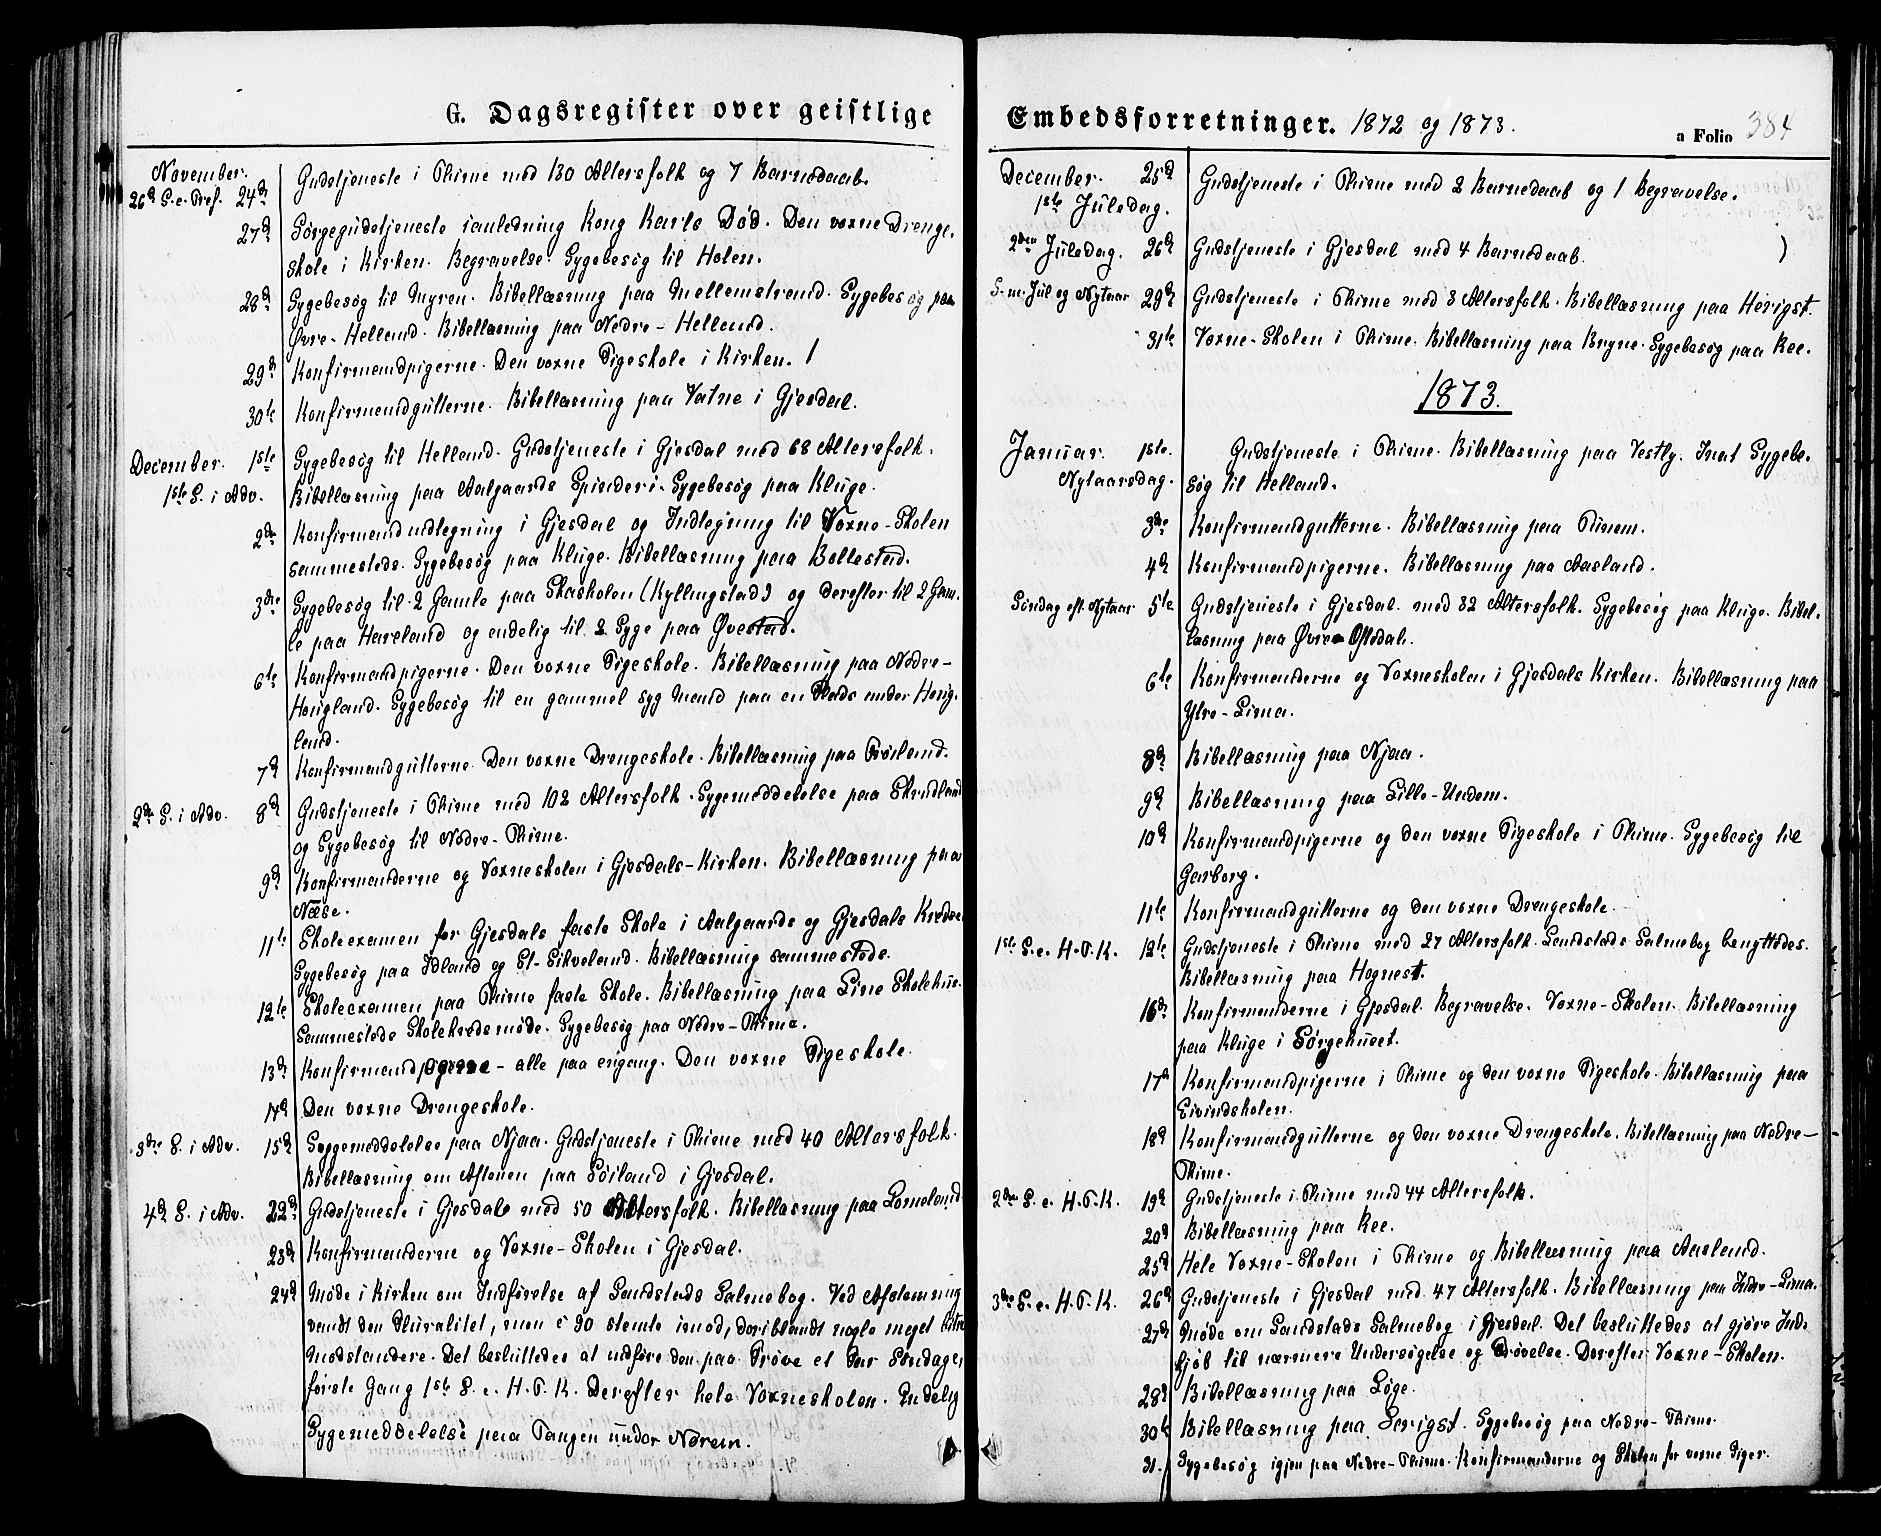 G. Dagsregister over geistlige
November.
26d S. e. Tref. 24d Gudstjeneste i Thime med 130 Altersfolk og 7 Barnedaab.
27d Sørgegudstjeneste i anledning Kong Karls Død. Den voxne Drenge-
skole i Kirken. Begravelse. Sygebesøg til Holen.
28d Sygebesøg til Myren. Bibellæsning paa Mellemstrand. Sygebesøg paa
Øvre-Helland. Bibellæsning paa Nedre-Helland.
29d Konfirmandpigerne. Den voxne Pigeskole i Kirken.
30te Konfirmandgutterne. Bibellæsning paa Vatne i Gjesdal.
December. 1ste Sygebesøg til Helland. Gudstjeneste i Gjesdal med 68 Altersfolk.
1ste S. i Adv. Bibellæsning paa Aalgaards Spinderi. Sygebesøg paa Kluge.
2de Konfirmandudlegning i Gjesdal og Indlegning til Voxne-Skolen
sammesteds. Sygebesøg paa Kluge. Bibellæsning paa Bollestad.
3dre Sygebesøg til 2 Gamle paa Skaskolen (Kyllingstad) og derefter til 2 Gam-
le paa Haveland og endelig til 2 Syge paa Øvestad.
6te Konfirmandpigerne. Den voxne Pigeskole. Bibellæsning paa Nedre-
Hougland. Sygebesøg til en gammel syg Mand paa en Plads under Herig-
land.
7d Konfirmandgutterne. Den voxne Drengeskole. Bibellæsning paa Frøiland.
2de S. i Adv. 8d Gudstjeneste i Thime med 102 Altersfolk. Sygemeddelelse paa Skrudland
og Sygebesøg til Nedre-Thime.
9d Konfirmanderne og Voxneskolen i Gjesdals-Kirken. Bibellæsning paa
Næse.
11te Skoleexamen for Gjesdals faste Skole i Aalgaards og Gjesdals Kredse.
Sygebesøg paa Idland og St-Sikveland. Bibellæsning sammesteds.
12te Skoleexamen paa Thime faste Skole. Bibellæsning paa Line Skolehus.
Sammesteds Skolekredsmøde. Sygebesøg paa Nedre-Thime.
13d Konfirmandpigerne - alle paa engang. Den voxne Pigeskole.
14d Den voxne Drengeskole.
3dre S. i Adv. 15d Sygemeddelelse paa Njaa. Gudstjeneste i Thime med 40 Altersfolk.
Bibellæsning om Aftenen paa Søiland i Gjesdal.
4d S. i Adv. 22d Gudstjeneste i Gjesdal med 50 Altersfolk. Bibellæsning paa Lomeland.
23d Konfirmanderne og Voxne-Skolen i Gjesdal.
24d Møde i Kirken om Indførelse af Landstads Salmebog. Ved Afstemning
vandt den Pluralitet, men c 20 stemte imod, deriblandt nogle meget bitre
Modstandere. Det besluttedes at indføre den paa Prøve et Par Søndage,
første Gang 1ste S. e. H. T. K. Derefter hele Voxneskolen. Endelig
Sygemeddelelse paa Tangen under Norem.
Embedsforretninger. 1872 og 1873.
a Folio 384
December. 25d Gudstjeneste i Thime med 2 Barnedaab og 1 Begravelse.
1ste Juledag.
2den Juledag. 26d Gudstjeneste i Gjesdal med 4 Barnedaab.
S. m. Jul og Nytaar 29d Gudstjeneste i Thime med 3 Altersfolk. Bibellæsning paa Herigst.
31te Voxne-Skolen i Thime. Bibellæsning paa Bryne. Sygebesøg paa Ree.
1873.
Januar. 1ste. Gudstjeneste i Thime. Bibellæsning paa Vestly. Inat Sygebe-
Nytaarsdag. søg til Helland.
3dre Konfirmandgutterne. Bibellæsning paa Tinem.
4d Konfirmandpigerne. Bibellæsning paa Aasland.
Søndag eft. Nytaar 5te Gudstjeneste i Gjesdal med 32 Altersfolk. Sygebesøg paa Kluge. Bibel-
læsning paa Øvre Oltedal.
6te Konfirmanderne og Voxneskolen i Gjesdals Kirken. Bibellæsning paa
Ytre-Lima.
8d Bibellæsning paa Njaa.
9d Bibellæsning paa Lille-Undem.
10d Konfirmandpigerne og den voxne Pigeskole i Thime. Sygebesøg til
Garborg.
11te Konfirmandgutterne og den voxne Drengeskole.
1ste S. e. H. T. K. 12te Gudstjeneste i Thime med 27 Altersfolk. Landstads Salmebog benyttedes.
Bibellæsning paa Hognest.
16d Konfirmanderne i Gjesdal. Begravelse. Voxne-Skolen. Bibellæsning
paa Kluge i Sørgehuset.
17d Konfirmandpigerne i Thime og den voxne Pigeskole. Bibellæsning paa
Eivindsholen.
18d Konfirmandgutterne og den voxne Drengeskole. Bibellæsning paa Nedre-
Thime.
2den S. e. H. T. K. 19d Gudstjeneste i Thime med 44 Altersfolk.
20d Bibellæsning paa Ree.
25d Hele Voxne-Skolen i Thime og Bibellæsning paa Aasland.
3dre S. e. H. T. K. 26d Gudstjeneste i Gjesdal med 47 Altersfolk. Bibellæsning paa Indre-Lima.
27d Møde om Landstads Salmebog i Gjesdal. Det besluttedes at gjøre Ind-
kjøb til nærmere Undersøgelse og Prøvelse. Derefter Voxne-Skolen.
28d Bibellæsning paa Løge.
30te Bibellæsning paa Serigst. Sygebesøg paa Nedre-Thime.
31. Sygebesøg igjen paa Nedre-Thime. Konfirmanderne og Skolen for voxne Piger.